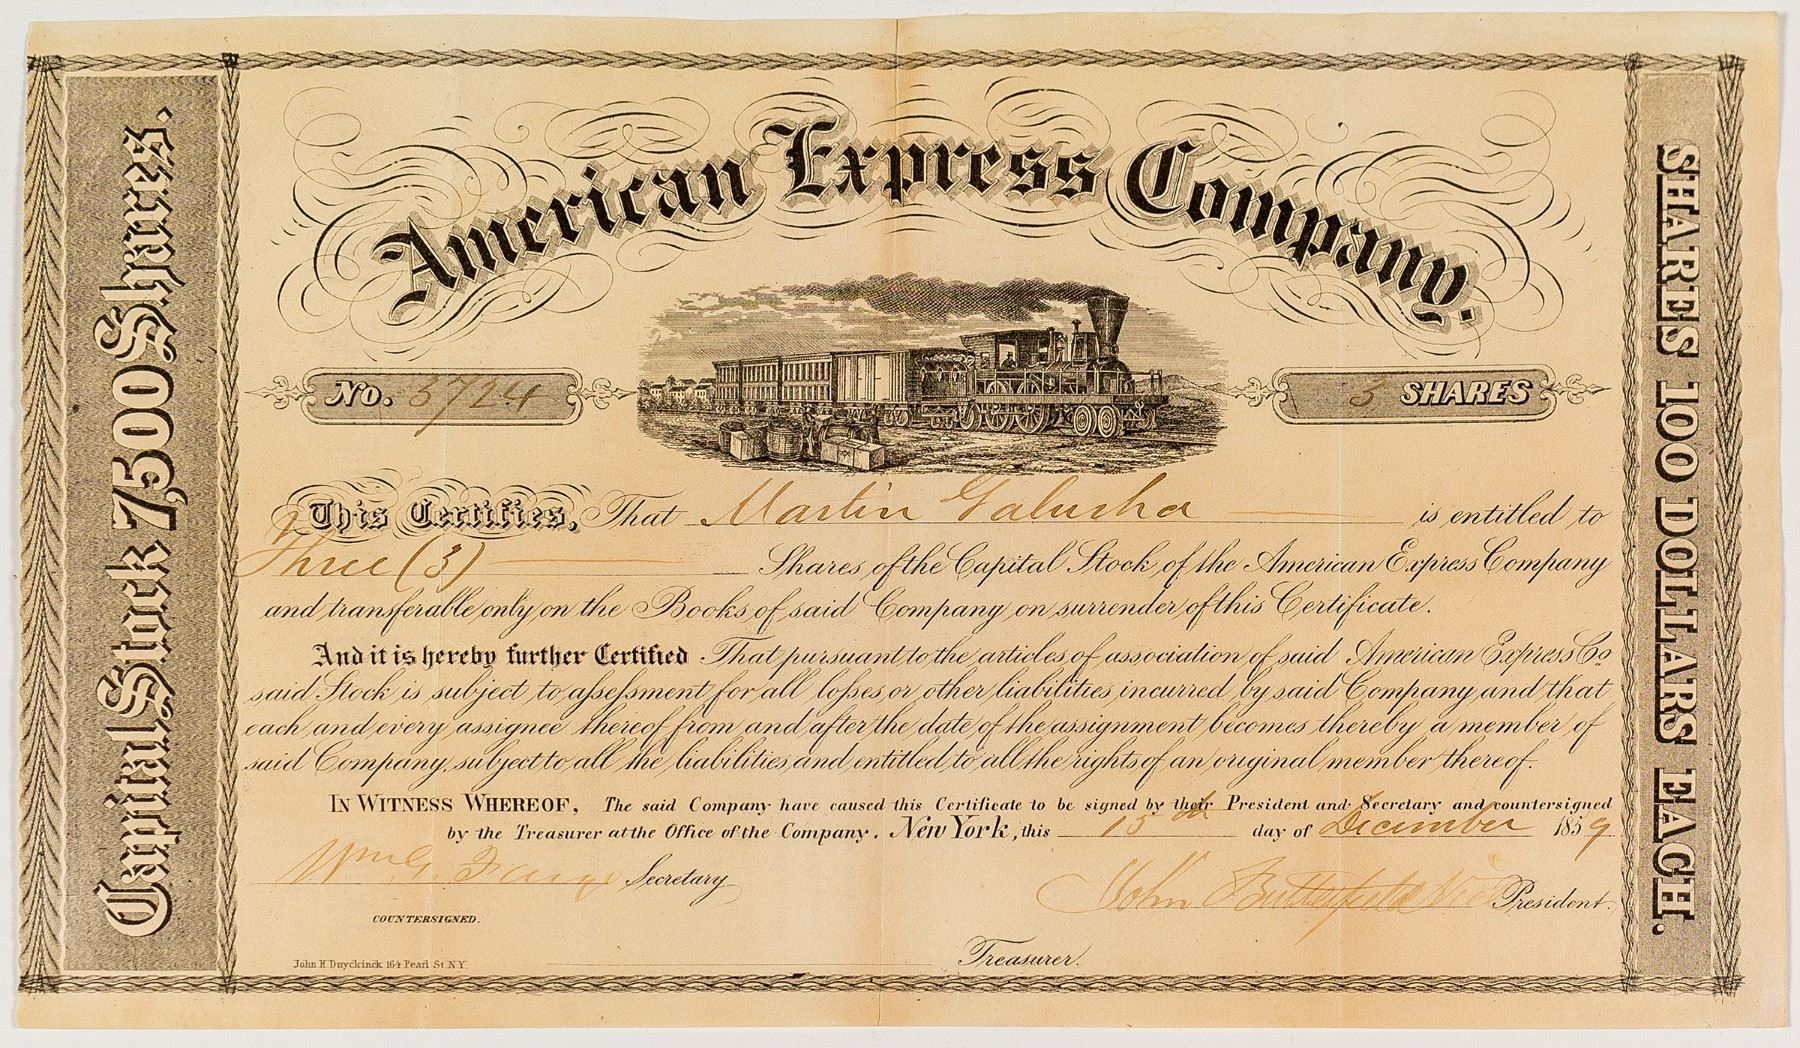 American Express Company.
Capital Stock 7,500 Shares.
SHARES 100 DOLLARS EACH.
No. 3724
3 SHARES
This Certifies, That Martin Galusha is entitled to
Three (3) Shares of the Capital Stock of the American Express Company
and transferable only on the Books of said Company on surrender of this Certificate.
And it is hereby further Certified That pursuant to the articles of association of said American Express Co.
said Stock is subject to assessment for all losses or other liabilities incurred by said Company and that
each and every assignee thereof from and after the date of the assignment becomes thereby a member of
said Company, subject to all the liabilities and entitled to all the rights of an original member thereof.
IN WITNESS WHEREOF, The said Company have caused this Certificate to be signed by their President and Secretary and countersigned
by the Treasurer at the Office of the Company. New York, this 15th day of December 1859
Wm G. Fargo Secretary
John Butterfield Vice President.
COUNTERSIGNED.
Treasurer.
John H. Duyckinck 164 Pearl St. N.Y.